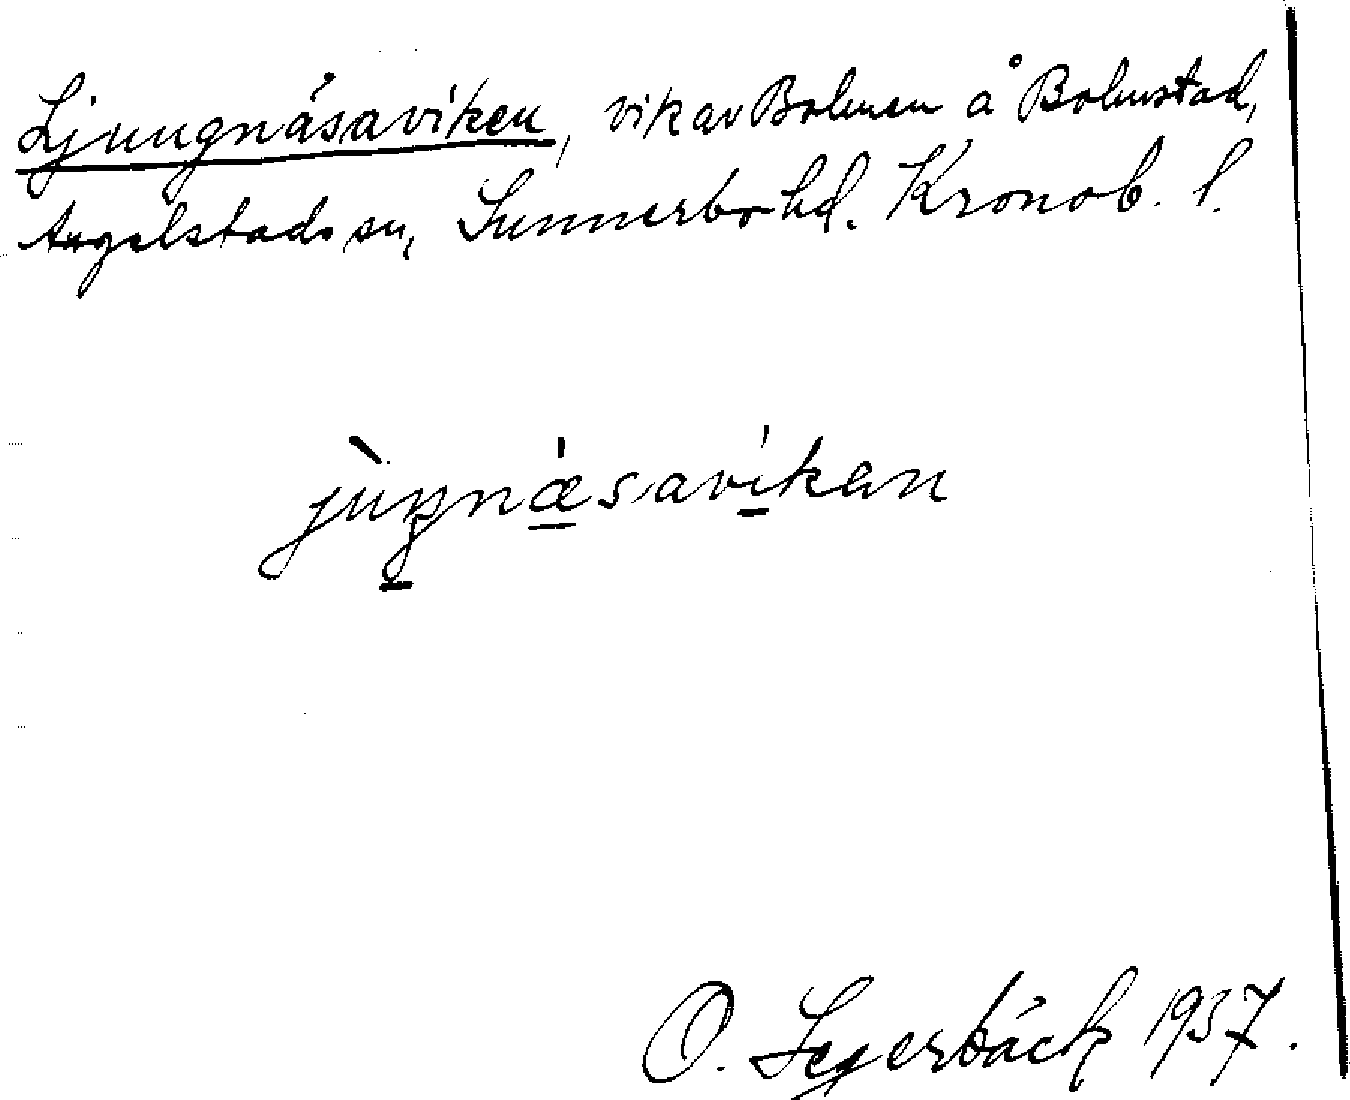 Ljungnäsaviken, vik av Bolmen å Bolmstad,
Angelstads sn, Sunnerbo hd. Kronob. l.
jùŋnæ̀savíkan
O. Segerbäck 1937.